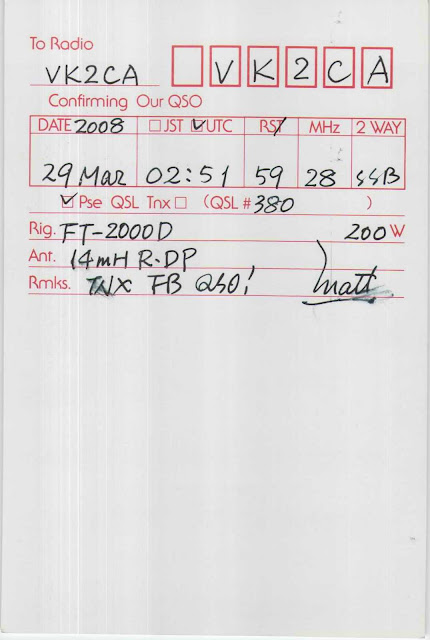 To Radio
VK2CA VK2CA
Confirming Our QSO
DATE 2008 □ JST ☑ UTC RST MHz 2 WAY
29 Mar 02:51 59 28 SSB
☑ Pse QSL Tnx □ (QSL # 380 )
Rig. FT-2000D 200 W
Ant. 14mH R.DP
Rmks. TNX FB QSO! Matt